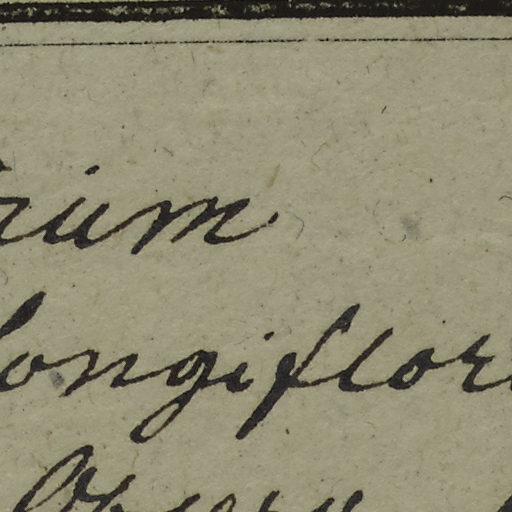 rium
longiflor